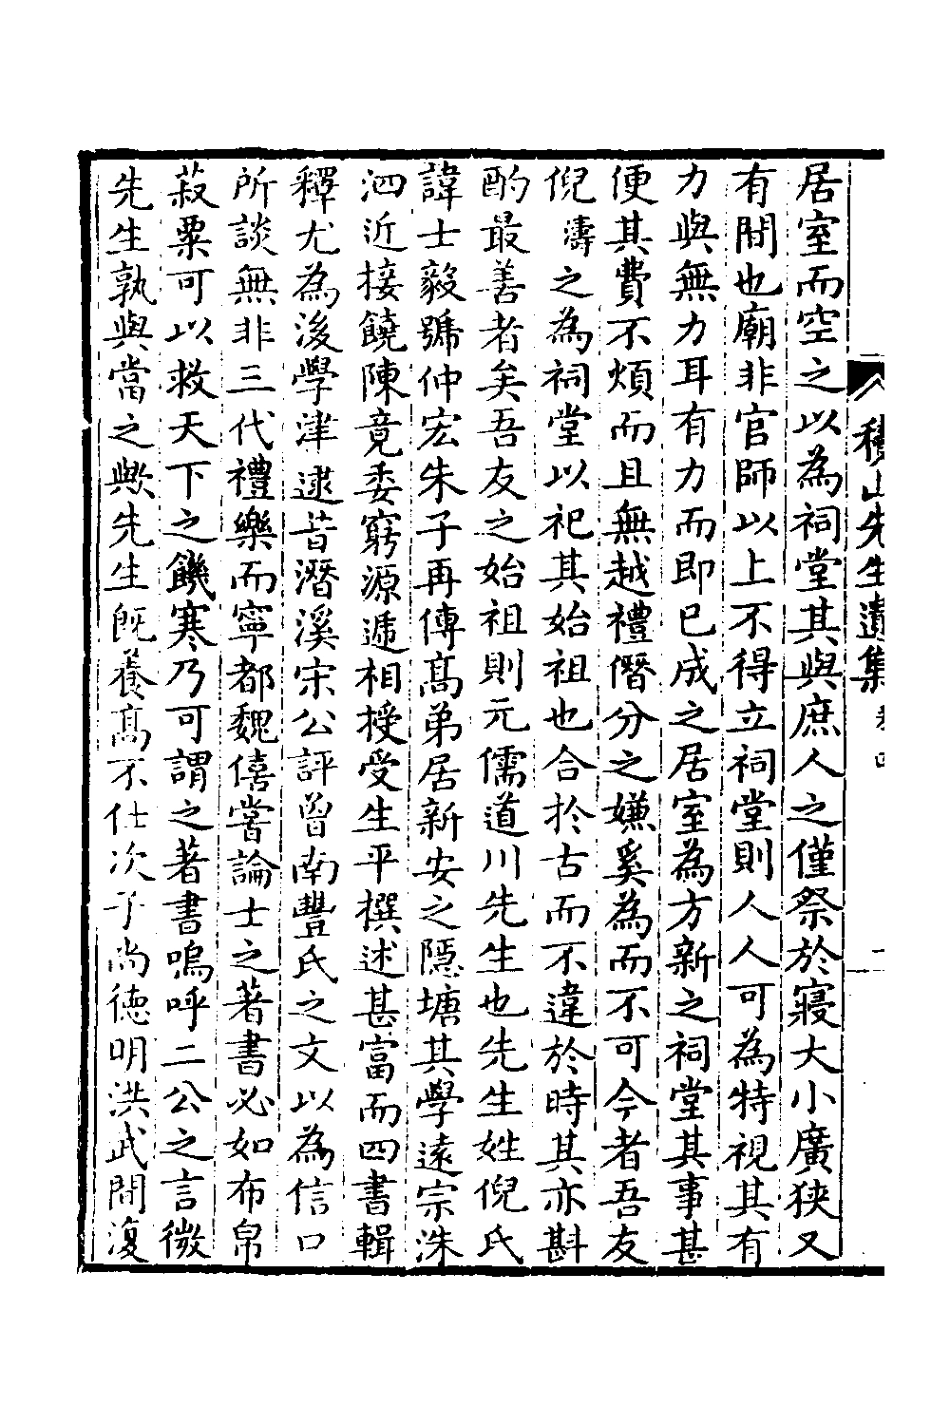 積山先生遺集
居室而空之以為祠堂其與庶人之僅祭於寢大小廣狹又
有間也廟非官師以上不得立祠堂則人人可為特視其有
力與無力耳有力而即已成之居室為方新之祠堂其事甚
便其費不煩而且無越禮僭分之嫌奚為而不可今者吾友
倪濤之為祠堂以祀其始祖也合於古而不違於時其亦斟
酌最善者矣吾友之始祖則元儒道川先生也先生姓倪氏
諱士毅號仲宏朱子再傳高弟居新安之隱塘其學遠宗洙
泗近接饒陳竟委窮源遞相授受生平撰述甚富而四書輯
釋尤為後學津逮昔潛溪宋公評曾南豐氏之文以為信口
所談無非三代禮樂而寧都魏僖嘗論士之著書必如布帛
菽粟可以救天下之饑寒乃可謂之著書嗚呼二公之言微
先生孰與當之歟先生既養高不仕次子尚德明洪武間復